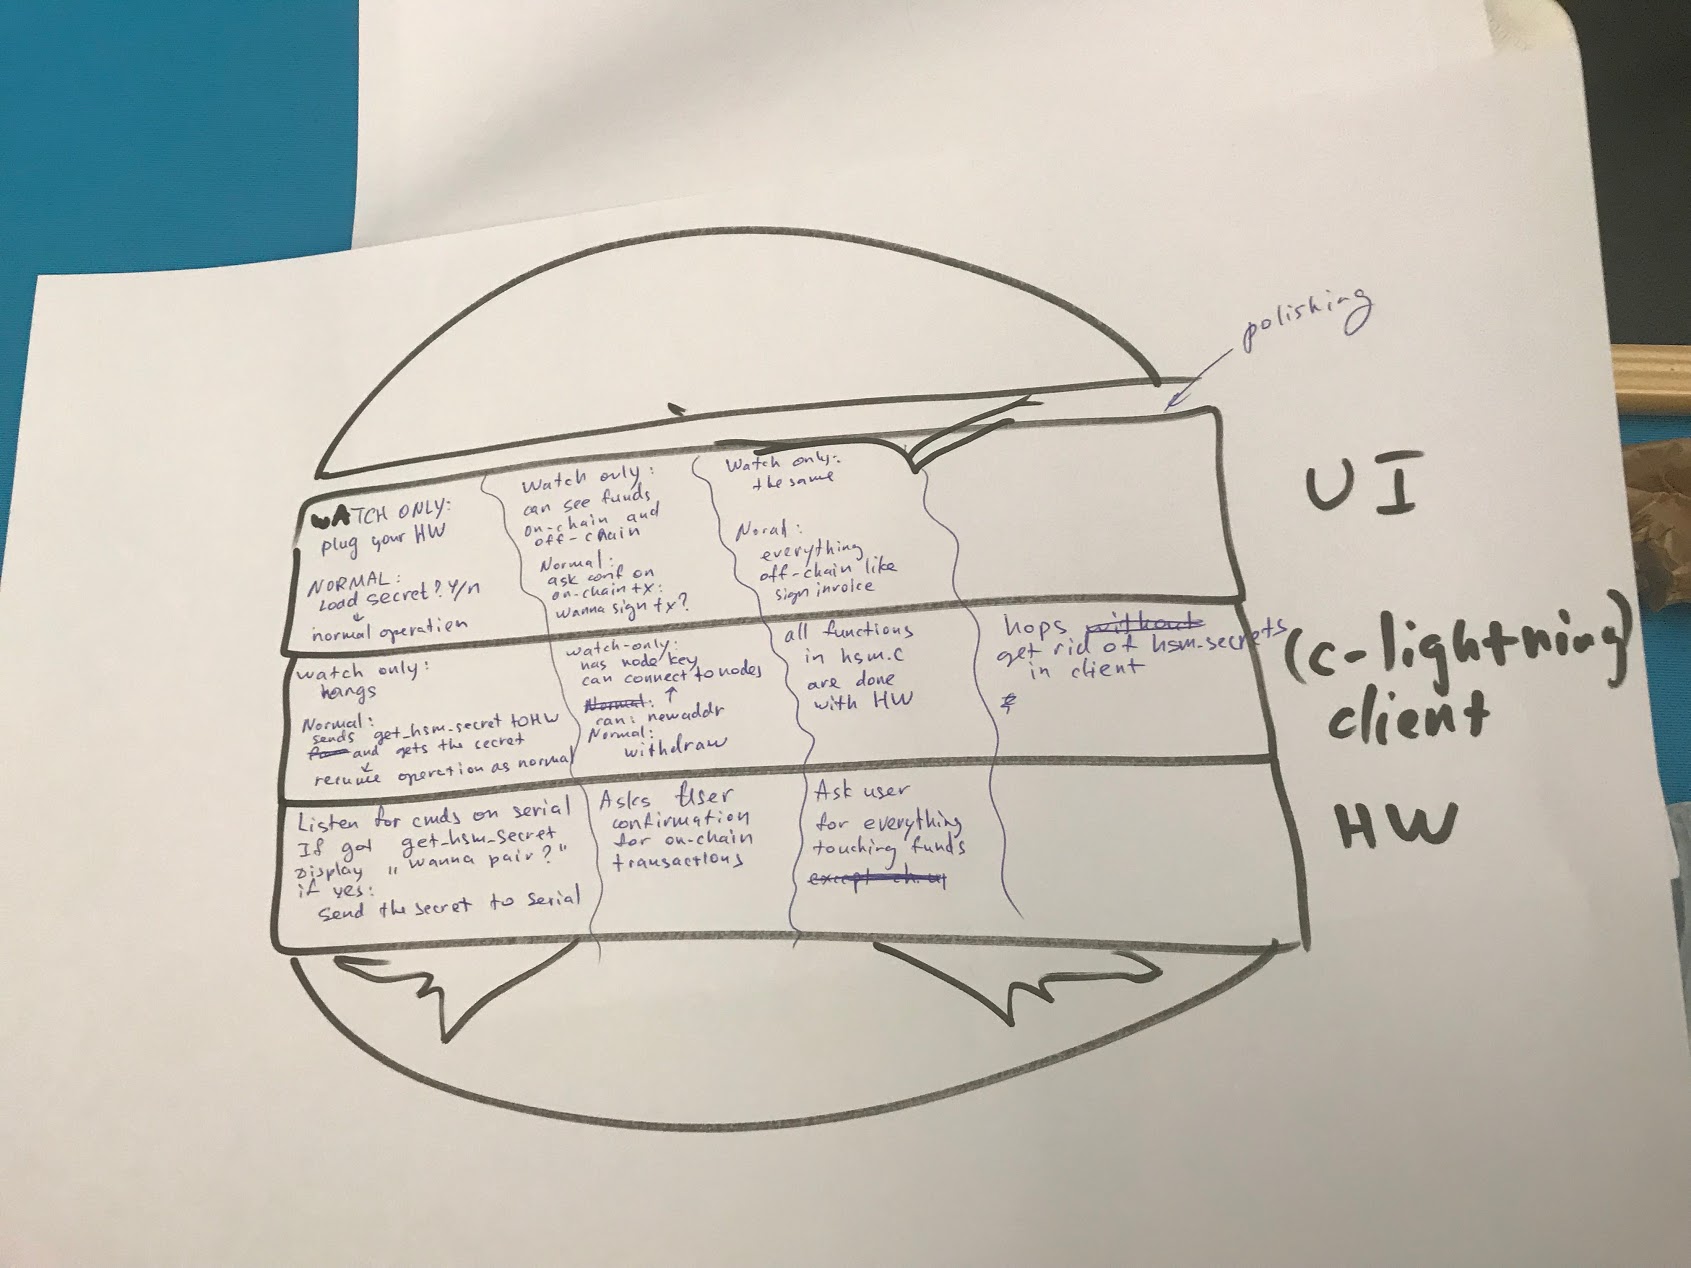 polishing
WATCH ONLY:
plug your HW
NORMAL:
Load secret? Y/n
normal operation
Watch only:
can see funds
on-chain and
off-chain
Normal:
ask conf on
on-chain tx:
wanna sign tx?
Watch only:
the same
Noral:
everything
off-chain like
sign invoice
UI
watch only:
hangs
Normal:
sends get_hsm_secret to HW
and gets the secret
resume operation as normal
watch-only:
has node key
can connect to nodes
Normal:
can: newaddr
Normal:
withdraw
all functions
in hsm.c
are done
with HW
hops without
get rid of hsm-secrets
in client
(c-lightning)
client
Listen for cmds on serial
If got get_hsm_secret
Display „wanna pair?"
if yes:
Send the secret to serial
Asks User
confirmation
for on-chain
transactions
Ask user
for everything
touching funds
except ch.
HW